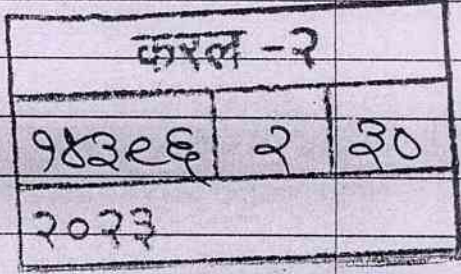 करल - २
१४३९६ २ ३०
२०२३